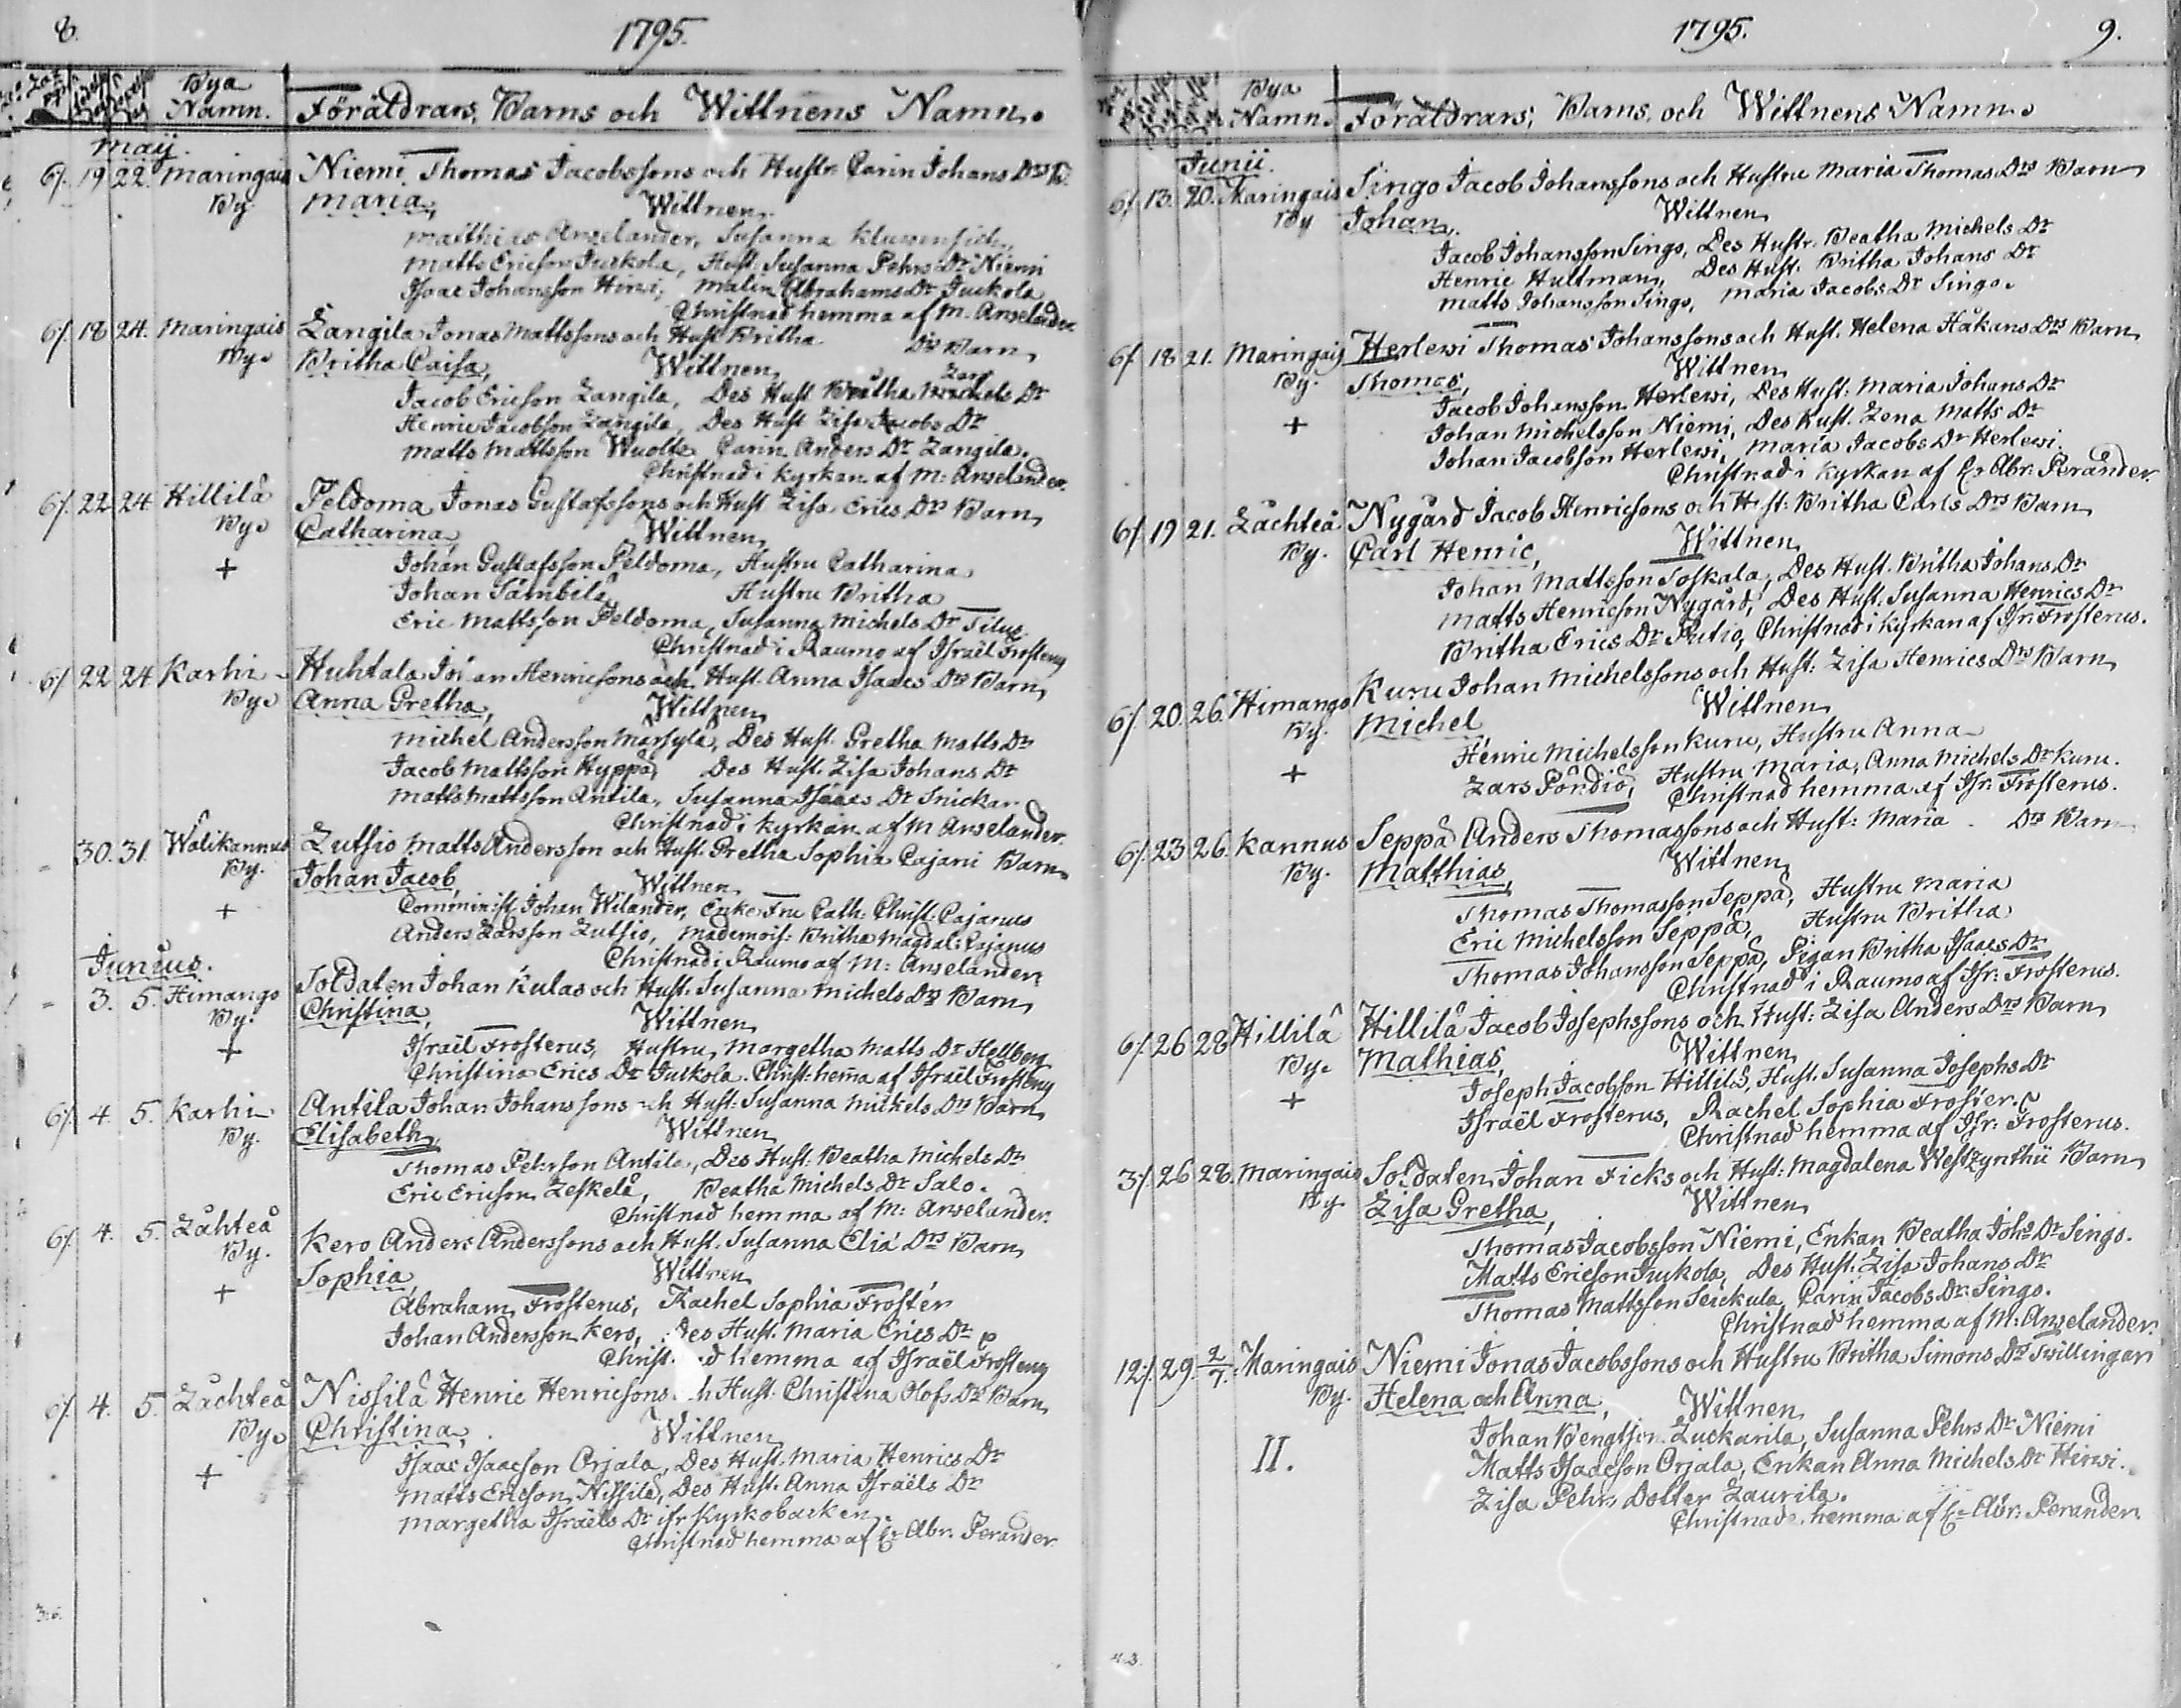 8.
1795.
Bya
Namn.
Föräldrars, Barns och Wittnens Namn.
Maÿ.
6/. 19 22. Maringais Niemi Thomas Jacobssons och Hustr. Carin Johans Drs B.
By Maria, Wittnen
Matthias Anselander, Susanna
Matts Ericson Juckola, Hust. Susanna Pehrs Dr Niemi
Isaac Johansson Hirvi, Malin Abrahams Dr Juckola
Christnad hemma af M. Anselander
6/. 18 24. Maringais Zangila Jonas Mattssons och Hust Britha Drs Barn
By. Britha Caisa, Wittnen
Jacob Ericson Zangila, Des Hust Britha Michels Dr
Henric Jacobson Zangila, Des Hust Lisa Jacobs Dr
Matts Mattsson Wuolte Carin Anders Dr Zangila.
Christnad i kyrkan af M: Anselander.
6/. 22 24 Hillilä Peldoma Jonas Gustafssons och Hust Lisa Erics Drs Barn
By. Catharina, Wittnen
+ Johan Gustafsson Peldoma, Hustru Catharina
Johan Sämbilä, Hustru Britha
Eric Mattsson Peldoma, Susanna Michels Dr Tilus
Christnad i Raumo af Israël Frosterus
6/ 22 24 Karhi Huhtala Johan Henricsons och Hust. Anna Isaacs Drs Barn
By. Anna Gretha, Wittnen
Michel Andersson Marsylä, Des Hust. Gretha Matts Dr
Jacob Mattsson Hyppä, Des Hust. Lisa Johans Dr
Matts Mattsson Antila, Susanna Isaacs Dr Snickar
Christnad i kyrkan af M Anselander.
- 30. 31. Wälikannus Lutsio Matts Andersson och Hust. Gretha Sophia Cajani Barn
By. Johan Jacob, Wittnen
+ Comminist. Johan Wilander, Enke Fru Cath: Christ. Cajanus
Anders Larsson Lutsio, Mademois: Britha Magdal: Cajanus
Christnad i Raumo af M: Anselander
Junius.
- 3. 5. Himango Soldaten Johan Kulas och Hust. Susanna Michels Drs Barn
By. Christina, Wittnen
+ Israël Frosterus, Hustru Margetha Matts Dr Hellberg
Christina Erics Dr Juckola. Christ: hema af Israël Frosterus
6/. 4. 5. Karhi Antila Johan Johanssons och Hust: Susanna Mickels Drs Barn
By. Elisabeth, Wittnen
Thomas Pehrson Antila, Des Hust: Beatha Michels Dr
Eric Ericson Leskelä, Beatha Michels Dr Salo.
Christnad hemma af M: Anselander.
6/. 4. 5. Låhteå Kero Anders Anderssons och Hust. Susanna Eliæ Drs Barn
By. Sophia, Wittnen
+ Abraham Frosterus, Rachel Sophia Frostér
Johan Andersson Kero, Des Hust. Maria Erics Dr
Christnad hemma af Israël Frosterus
6/. 4. 5. Låchteå Nissilä Henric Henricsons och Hust. Christina Olofs Drs Barn
By. Christina, Wittnen
+ Isaac Isaacson Orjala, Des Hust. Maria Henrics Dr
Matts Ericson Nissilä, Des Hust. Anna Israëls Dr
Margetha Israëls Dr ifr. Kyrkobacken.
Christnad hemma af Abr. Peranden
1795.
9.
Bya
Namn.
Föräldrars, Barns, och Wittnens Namn.
Junii.
6/. 13. 20. Maringais Singo Jacob Johanssons och Hustru Maria Thomas Drs Barn
By Johan, Wittnen
Jacob Johansson Singo, Des Hustr. Beatha Michels Dr
Henric Hultman, Des Hust. Britha Johans Dr
Matts Johansson Singo, Maria Jacobs Dr Singo.
6/. 18 21. Maringais Herlewi Thomas Johanssons och Hust. Helena Håkans Drs Barn
By. Thomas, Wittnen
+ Jacob Johansson Herlewi, Des Hust: Maria Johans Dr
Johan Michelsson Niemi, Des Hust. Lena Matts Dr
Johan Jacobson Herlewi, Maria Jacobs Dr Herlewi.
Christnad i kyrkan af Abr. Perander.
6/. 19 21. Låchteå Nygård Jacob Henricsons och Hust: Britha Carls Drs Barn
By. Carl Henric, Wittnen
Johan Mattsson Toskala, Des Hust. Britha Johans Dr
Matts Henricson Nygård, Des Hust. Susanna Henrics Dr
Britha Erics Dr Putio, Christnad i kyrkan af Isr: Frosterus.
6/. 20 26. Himango Kuru Johan Michelssons och Hust: Lisa Henrics Drs Barn
By. Michel, Wittnen
+ Henric Michelsson Kuru, Hustru Anna
Lars Pöndiö, Hustru Maria, Anna Michels Dr Kuru.
Christnad hemma af Isr. Frosterus.
6/. 23 26. Kannus Seppä Anders Thomassons och Hust: Maria Drs Barn
By. Matthias, Wittnen
Thomas Thomasson Seppä, Hustru Maria
Eric Michelsson Seppä, Hustru Britha
Thomas Johansson Seppä, Pigan Britha Isaacs Dr
Christnad i Raumo af Isr: Frosterus.
6/. 26 28 Hillilä Hillilä Jacob Josephssons och Hust: Lisa Anders Drs Barn
By. Mathias, Wittnen
+ Joseph Jacobson Hillilä, Hust. Susanna Josephs Dr
Israël Frosterus, Rachel Sophia Froster.
Christnad hemma af Isr: Frosterus.
3/. 26 28. Maringais Soldaten Johan Ficks och Hust: Magdalena Barn
By. Lisa Gretha, Wittnen
Thomas Jacobsson Niemi, Enkan Beatha Johs Dr Singo.
Matts Ericson Juckola, Des Hust: Lisa Johans Dr
Thomas Mattsson Seickula Carin Jacobs Dr Singo.
Christnad hemma af M: Anselander.
12/. 29. 2/7. Maringais Niemi Jonas Jacobssons och Hustru Britha Simons Drs Twillingar
By. Helena och Anna, Wittnen
II. Johan Bengtson Luckarila, Susanna Pehrs Dr Niemi
Matts Isaacson Orjala, Enkan Anna Michels Dr Hirvi.
Lisa Pehrs Dotter Laurila.
Christnade hemma af Abr: Peranden